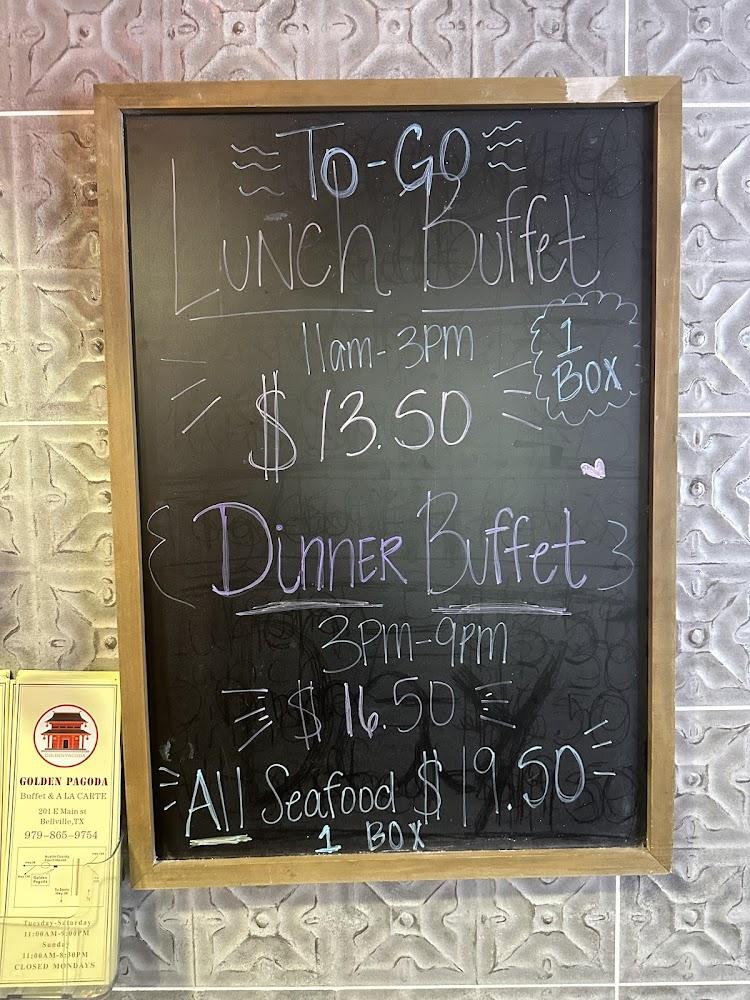 To-Go
Lunch Buffet
11am-3pm
1
Box
$13.50
Dinner Buffet
3pm-9pm
$16.50
All Seafood $19.50
1 Box
GOLDEN PAGODA
GOLDEN PAGODA
Buffet & A LA CARTE
201 E Main st
Bellville,TX
979-865-9754
Golden
Pagoda
Tuesday-Saturday
11:00AM-9:00PM
Sunday
11:00AM-8:30PM
CLOSED MONDAYS